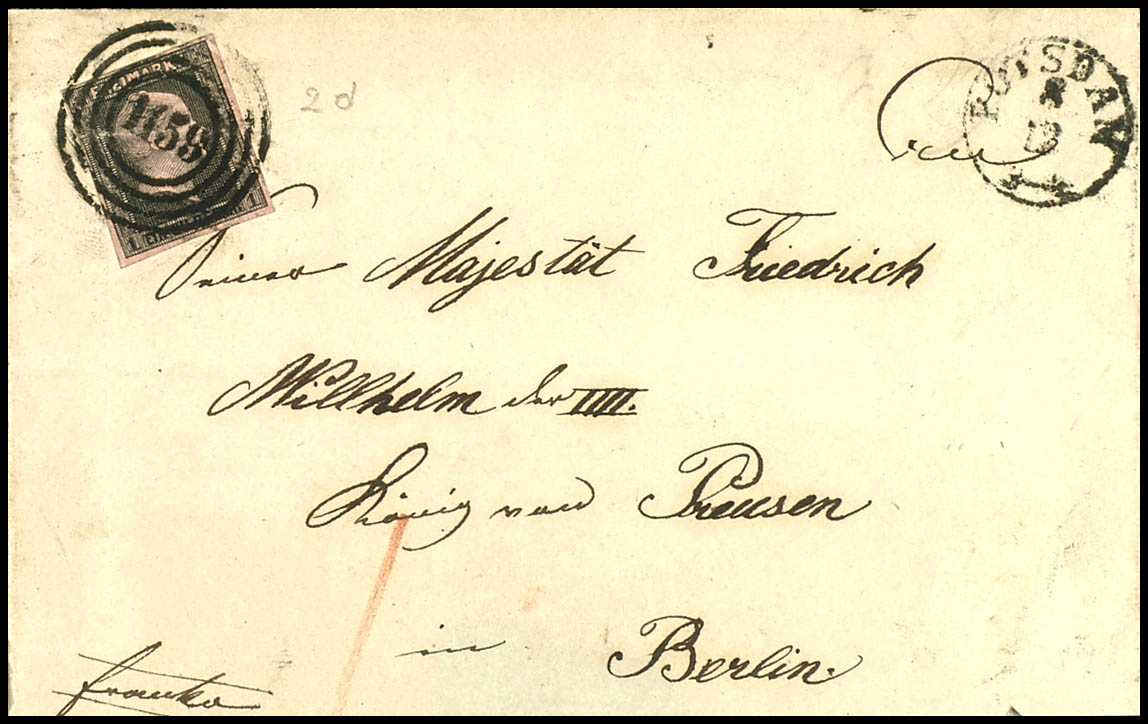 FREIMARKE
1159
1 1
2 d
POTSDAM
8
12
An
Seiner Majestät Friedrich
Willhelm der IIII.
König von Preusen
in Berlin.
franko